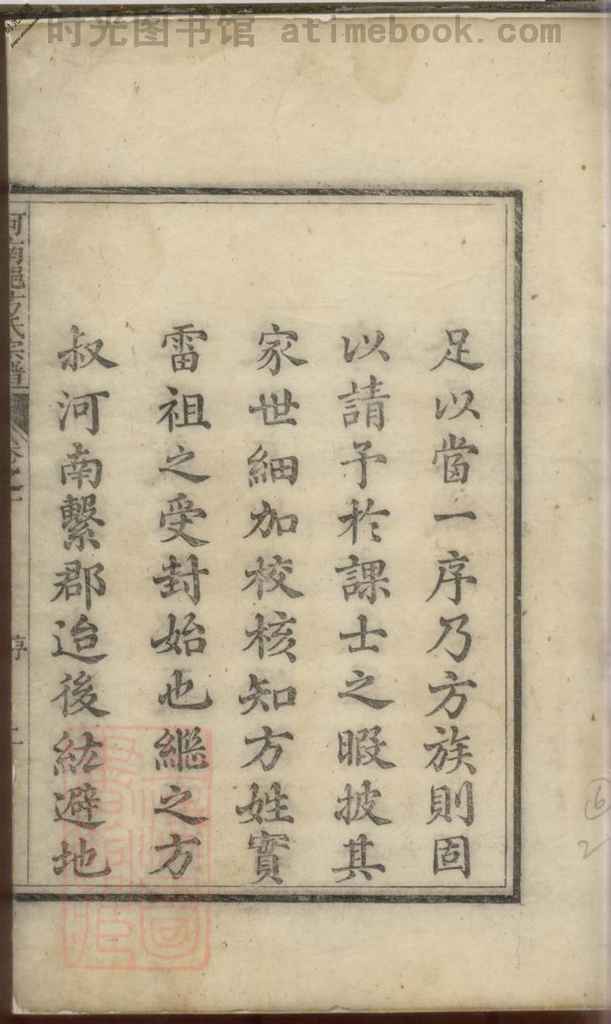 时光图书馆 atimebook.com
足以當一序乃方族則固
以請予於課士之暇披其
家世細加校核知方姓實
雷祖之受封始也繼之方
叔河南繫郡迨後紘避地
河南邑方氏宗譜
卷之一
序
二
6
2